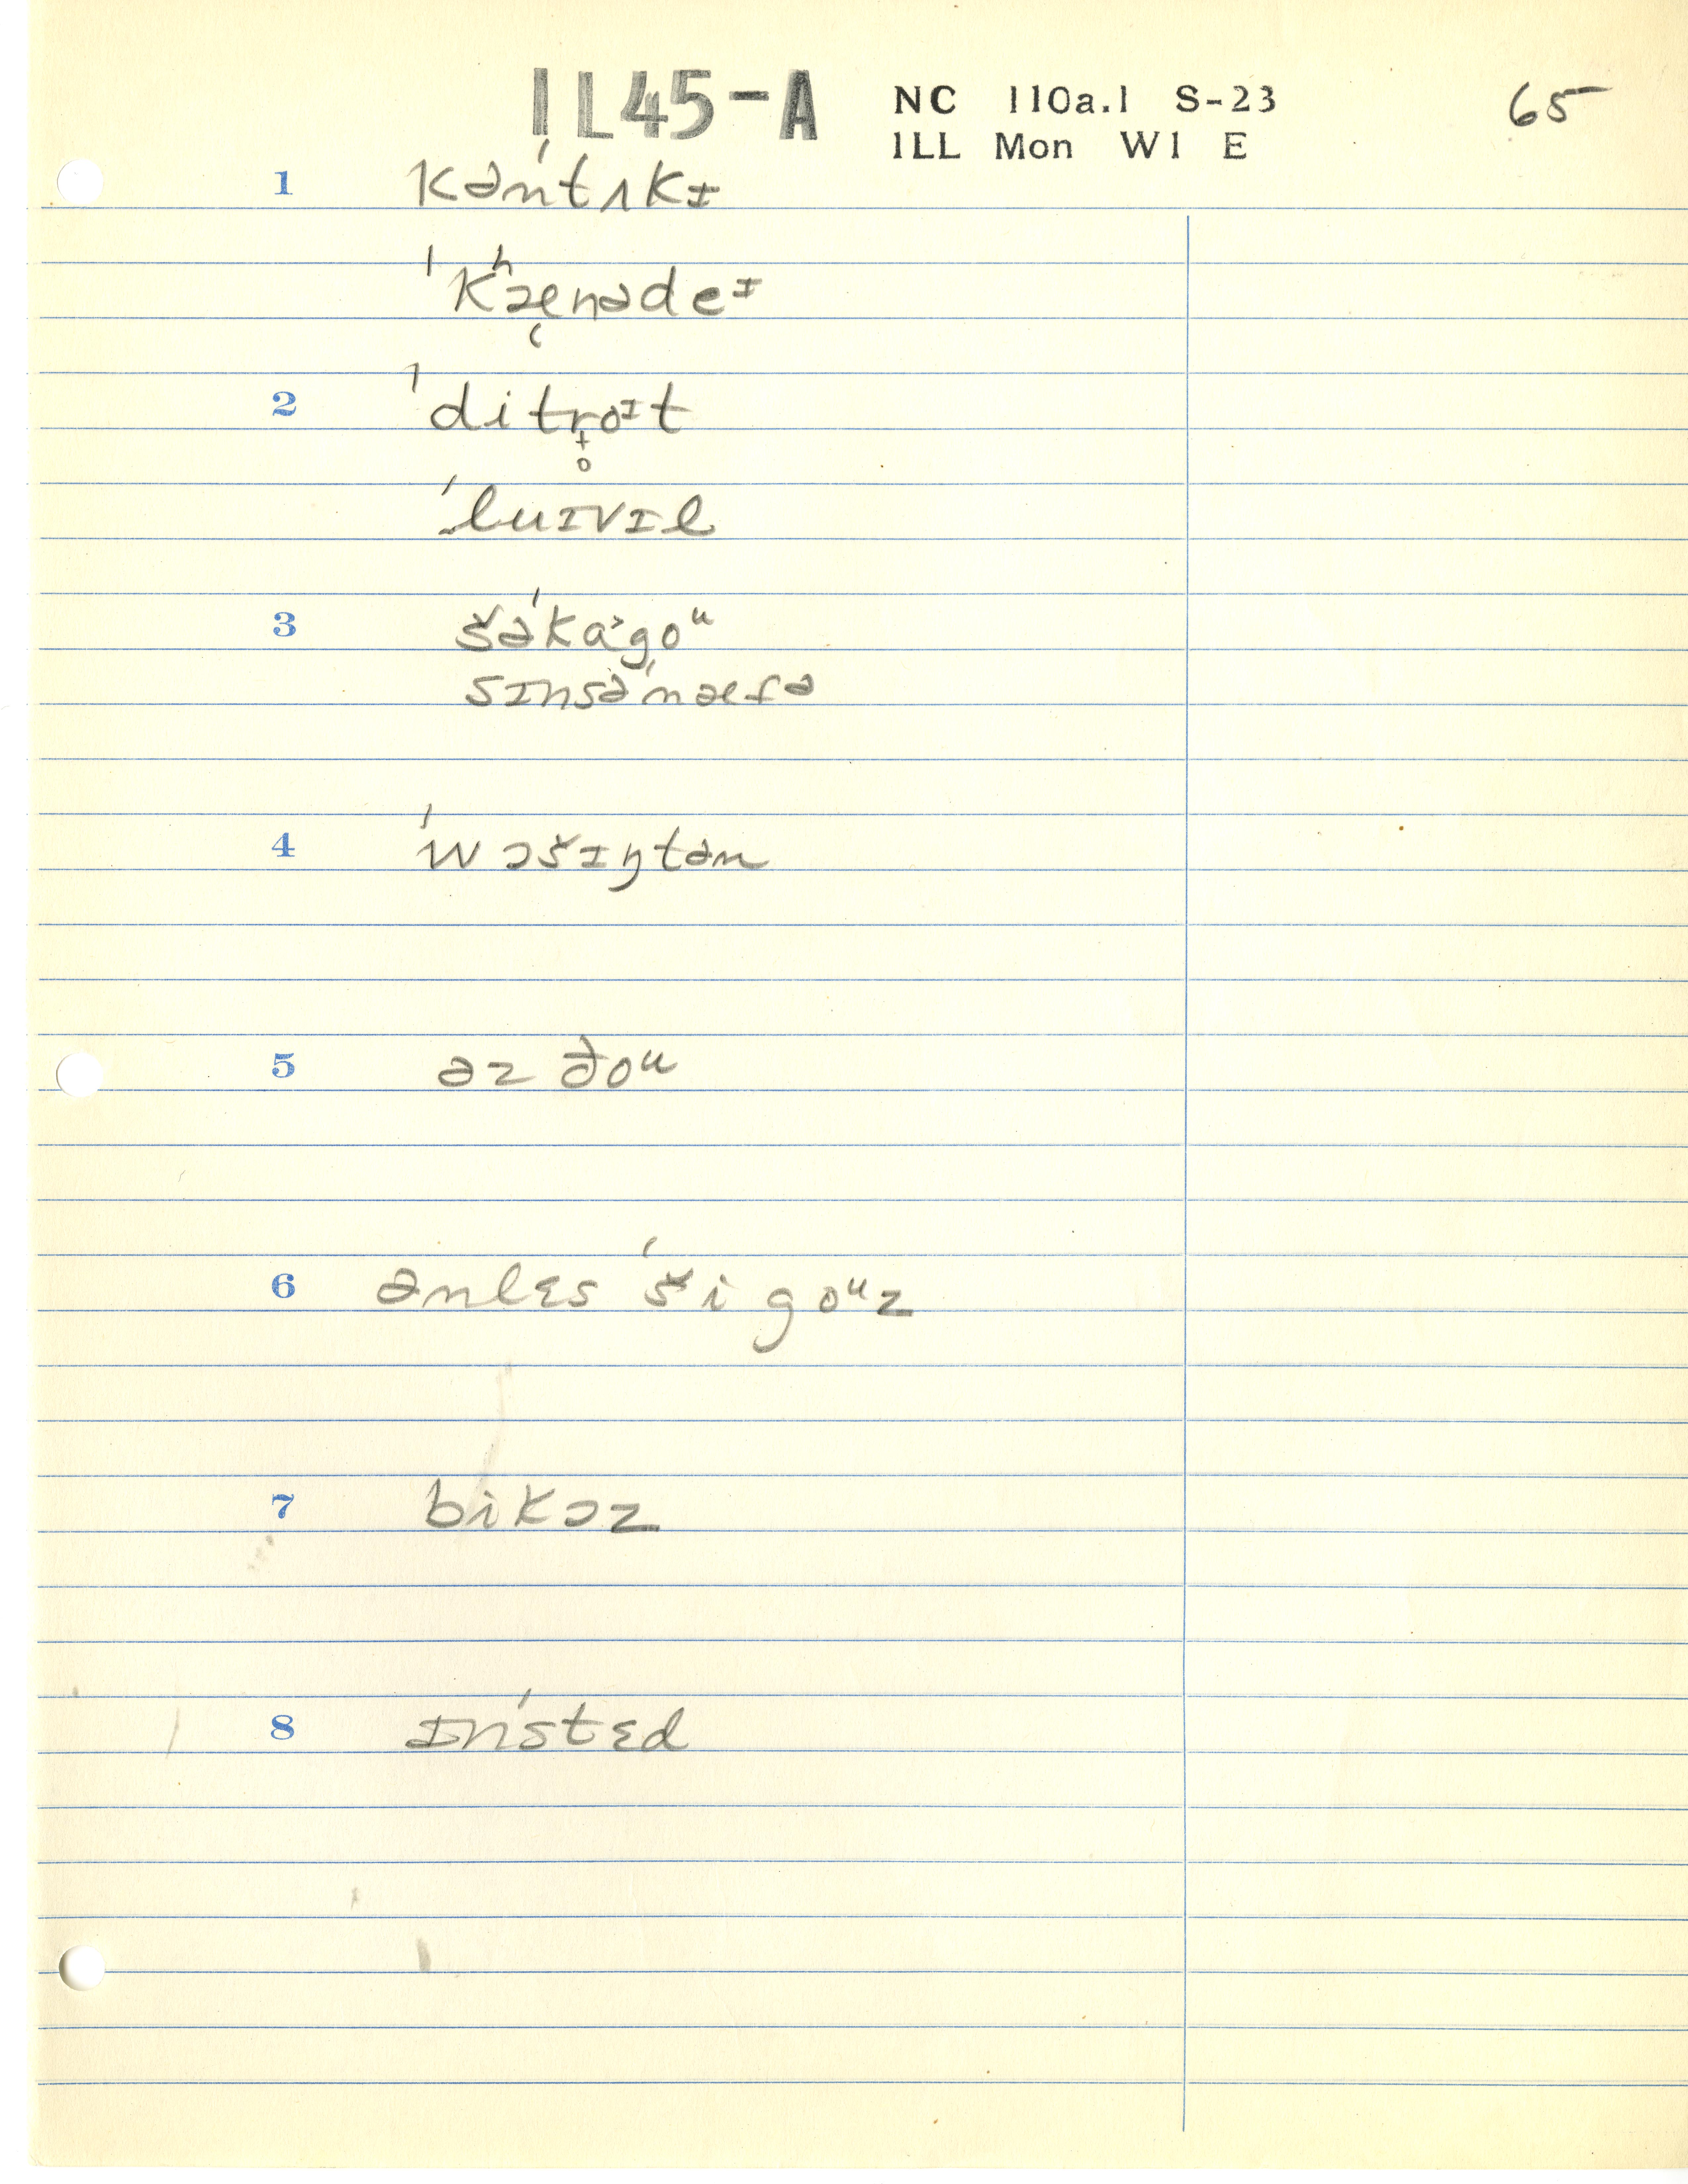 IL45-A NC 110a.1 S-23 65
ILL Mon W1 E
1 kən'tʌkɪ
'kʰænədeᶦ
2 'ditroᶦt
'luɪvɪl
3 šə'ka˃goᵘ
sɪnsə'næfə
4 'wɔšɪŋtən
5 əz ðoᵘ
6 ənlɛs 'ši goᵘz
7 bikɔz
8 ɪn'stɛd